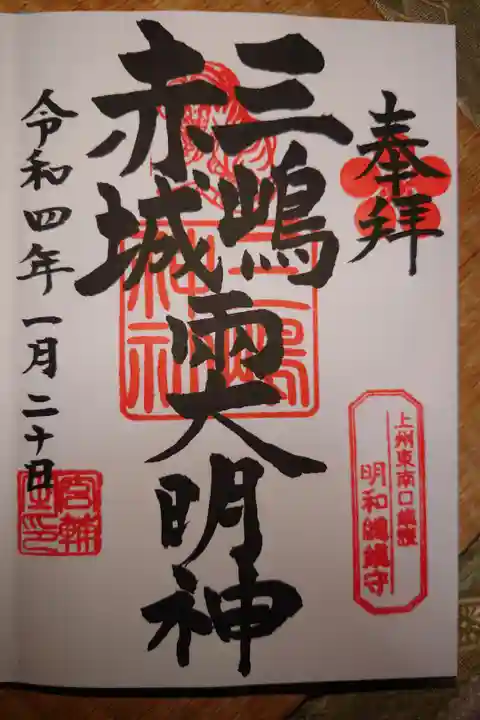 奉拝
上州東南口鎮護
明和總鎮守
三嶋
赤城
両大明神
三嶋
神社
令和四年一月二十日